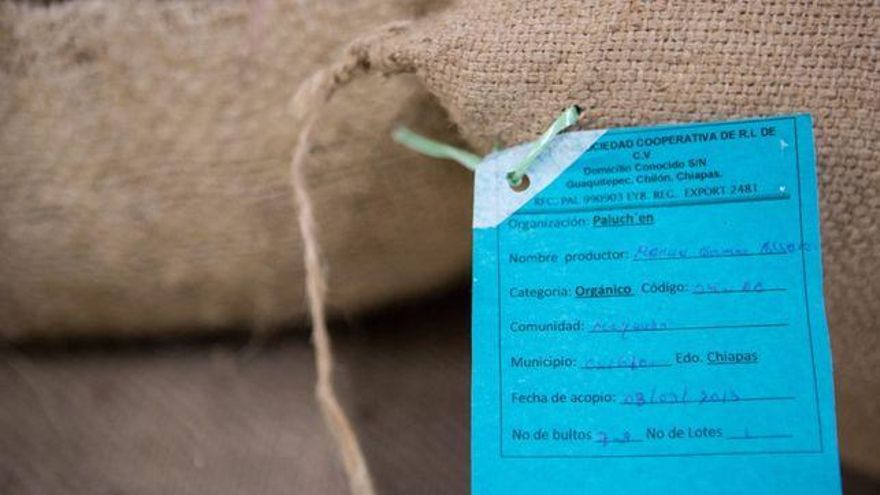 SOCIEDAD COOPERATIVA DE R.L DE
C.V
Domicilio Conocido S/N
Guaquitepec, Chilón, Chiapas.
RFC. PAL 990903 EY8. REG. EXPORT 2481
Organización: Paluch´en
Nombre productor:
Categoria: Orgánico Código:
Comunidad:
Municipio: Edo. Chiapas
Fecha de acopio: 03/03/2013
No de bultos No de Lotes 1